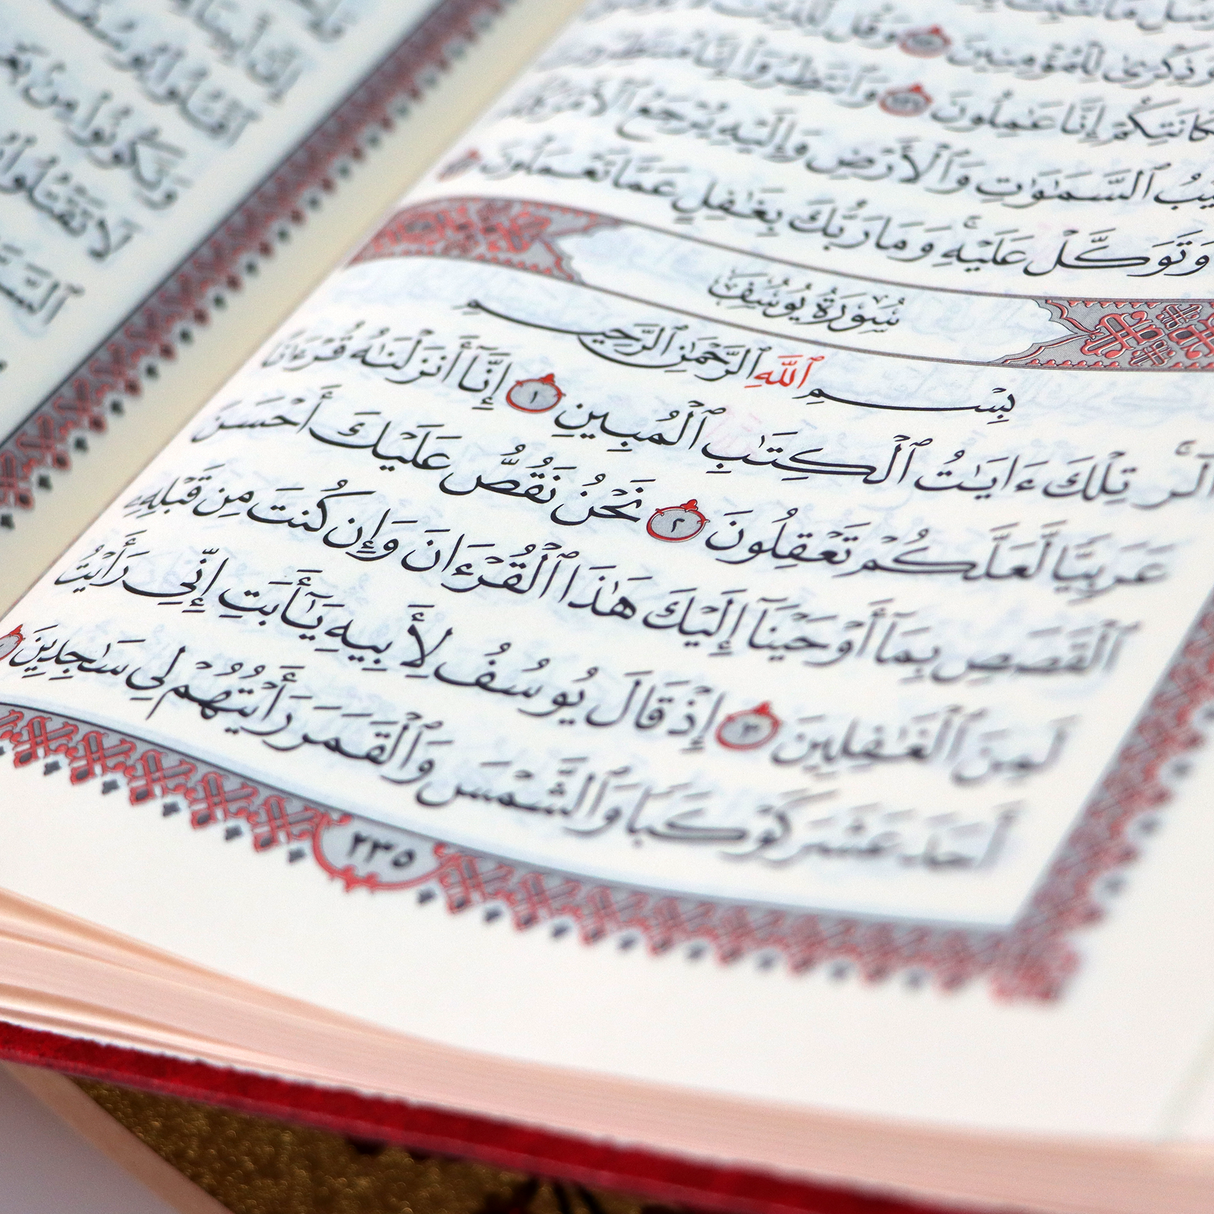 وَذِكْرَىٰ لِلْمُؤْمِنِينَ ۝ وَقُل لِّلَّذِينَ
مَكَانَتِكُمْ إِنَّا عَٰمِلُونَ ۝ وَٱنتَظِرُوٓا۟ إِنَّا مُنتَظِرُونَ
غَيْبُ ٱلسَّمَٰوَٰتِ وَٱلْأَرْضِ وَإِلَيْهِ يُرْجَعُ ٱلْأَمْرُ
وَتَوَكَّلْ عَلَيْهِ ۚ وَمَا رَبُّكَ بِغَٰفِلٍ عَمَّا تَعْمَلُونَ
سُورَةُ يُوسُفَ
بِسْمِ ٱللَّهِ ٱلرَّحْمَٰنِ ٱلرَّحِيمِ
الٓر ۚ تِلْكَ ءَايَٰتُ ٱلْكِتَٰبِ ٱلْمُبِينِ ١ إِنَّآ أَنزَلْنَٰهُ قُرْءَٰنًا
عَرَبِيًّا لَّعَلَّكُمْ تَعْقِلُونَ ٢ نَحْنُ نَقُصُّ عَلَيْكَ أَحْسَنَ
ٱلْقَصَصِ بِمَآ أَوْحَيْنَآ إِلَيْكَ هَٰذَا ٱلْقُرْءَانَ وَإِن كُنتَ مِن قَبْلِهِۦ
لَمِنَ ٱلْغَٰفِلِينَ ٣ إِذْ قَالَ يُوسُفُ لِأَبِيهِ يَٰٓأَبَتِ إِنِّى رَأَيْتُ
أَحَدَ عَشَرَ كَوْكَبًا وَٱلشَّمْسَ وَٱلْقَمَرَ رَأَيْتُهُمْ لِى سَٰجِدِينَ
٢٣٥